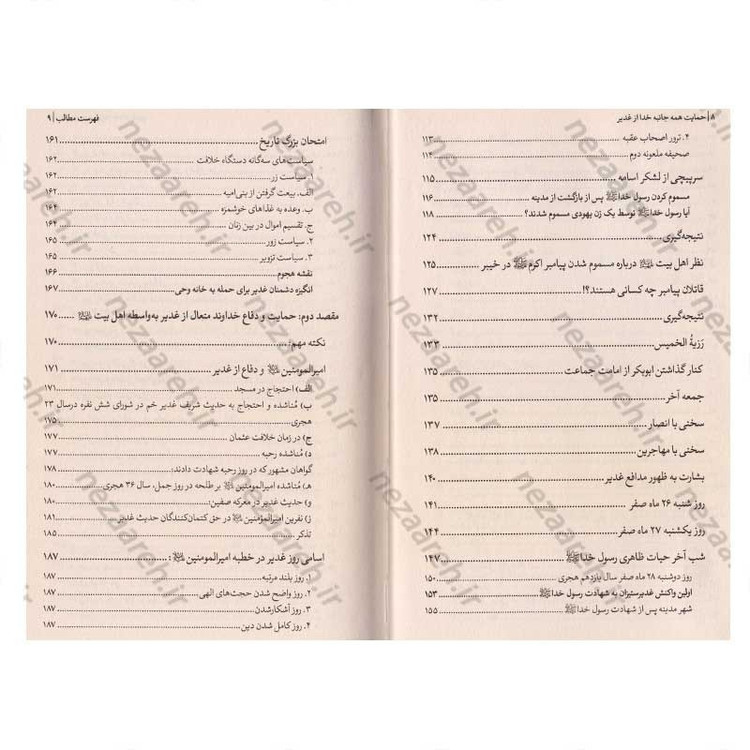 ۸ | حمایت همه جانبه خدا از غدیر
۴. ترور اصحاب عقبه ۱۱۳
صحیفه ملعونه دوم ۱۱۴
سرپیچی از لشکر اسامه ۱۱۵
مسموم کردن رسول خدا ﷺ پس از بازگشت از مدینه ۱۱۶
آیا رسول خدا ﷺ توسط یک زن یهودی مسموم شدند؟ ۱۱۸
نتیجه‌گیری ۱۲۴
نظر اهل بیت ﷺ درباره مسموم شدن پیامبر اکرم ﷺ در خیبر ۱۲۵
قاتلان پیامبر چه کسانی هستند؟! ۱۲۷
نتیجه‌گیری ۱۳۲
رَزیةُ الخمیس ۱۳۳
کنار گذاشتن ابوبکر از امامت جماعت ۱۳۵
جمعه آخر ۱۳۵
سختی با انصار ۱۳۷
سختی با مهاجرین ۱۳۸
بشارت به ظهور مدافع غدیر ۱۴۰
روز شنبه ۲۶ ماه صفر ۱۴۱
روز یکشنبه ۲۷ ماه صفر ۱۴۴
شب آخر حیات ظاهری رسول خدا ﷺ ۱۴۷
روز دوشنبه ۲۸ ماه صفر سال یازدهم هجری ۱۵۰
اولین واکنش غدیرستیزان به شهادت رسول خدا ﷺ ۱۵۳
شهر مدینه پس از شهادت رسول خدا ﷺ ۱۵۵
فهرست مطالب | ۹
امتحان بزرگ تاریخ ۱۶۱
سیاست‌های سه‌گانه دستگاه خلافت ۱۶۲
۱. سیاست زر ۱۶۲
الف. بیعت گرفتن از بنی‌امیه ۱۶۲
ب. وعده به غذاهای خوشمزه ۱۶۴
ج. تقسیم اموال در بین زنان ۱۶۴
۲. سیاست زور ۱۶۵
۳. سیاست تزویر ۱۶۵
نقشه هجوم ۱۶۶
انگیزه دشمنان غدیر برای حمله به خانه وحی ۱۶۷
مقصد دوم: حمایت و دفاع خداوند متعال از غدیر به‌واسطه اهل بیت ﷺ ۱۷۰
نکته مهم: ۱۷۰
امیرالمومنین و دفاع از غدیر ۱۷۱
الف) احتجاج در مسجد ۱۷۱
ب) مُناشده و احتجاج به حدیث شریف غدیر خم در شورای شش نفره درسال ۲۳
هجری ۱۷۵
ج) در زمان خلافت عثمان ۱۷۷
د) مُناشده رحبه ۱۷۷
گواهان مشهور که در روز رحبه شهادت دادند: ۱۷۸
هـ) مُناشده امیرالمومنین بر طلحه در روز جمل، سال ۳۶ هجری ۱۸۰
و) حدیث غدیر در معرکه صفین: ۱۸۰
ز) نفرین امیرالمؤمنین در حق کتمان‌کنندگان حدیث غدیر ۱۸۱
تذکر ۱۸۵
اسامی روز غدیر در خطبه امیرالمومنین: ۱۸۷
۱. روز بلند مرتبه: ۱۸۷
۲. روز واضح شدن حجت‌های الهی ۱۸۷
۳. روز آشکارشدن ۱۸۷
۴. روز کامل شدن دین ۱۸۷
nezaareh.ir